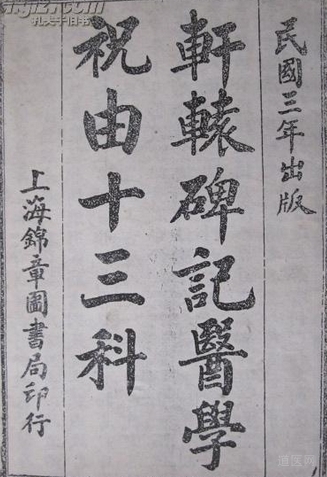 民國三年出版
軒轅碑記醫學
祝由十三科
上海錦章圖書局印行
孔夫子旧书
道医网